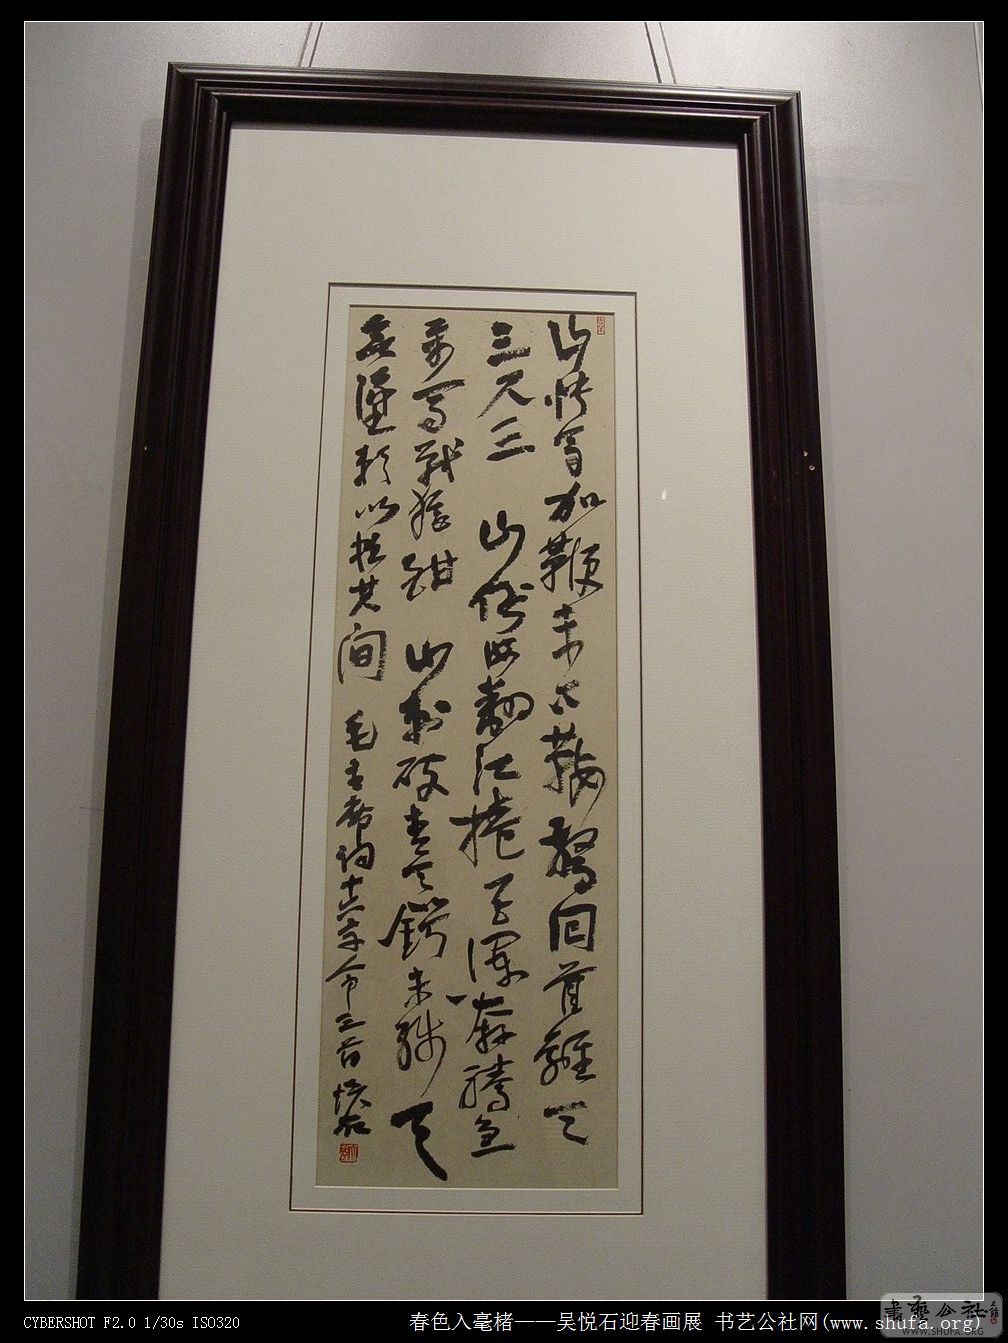 山快马加鞭未下鞍惊回首离天
三尺三 山倒海翻江捲巨澜奔腾急
万马战犹酣 山刺破青天锷未残天
欲堕赖以拄其间 毛主席词十六字令三首 悦石
CYBERSHOT F2.0 1/30s ISO320
春色入毫楮——吴悦石迎春画展 书艺公社网(www.shufa.org)
書藝公社
WWW.SHUFA.ORG